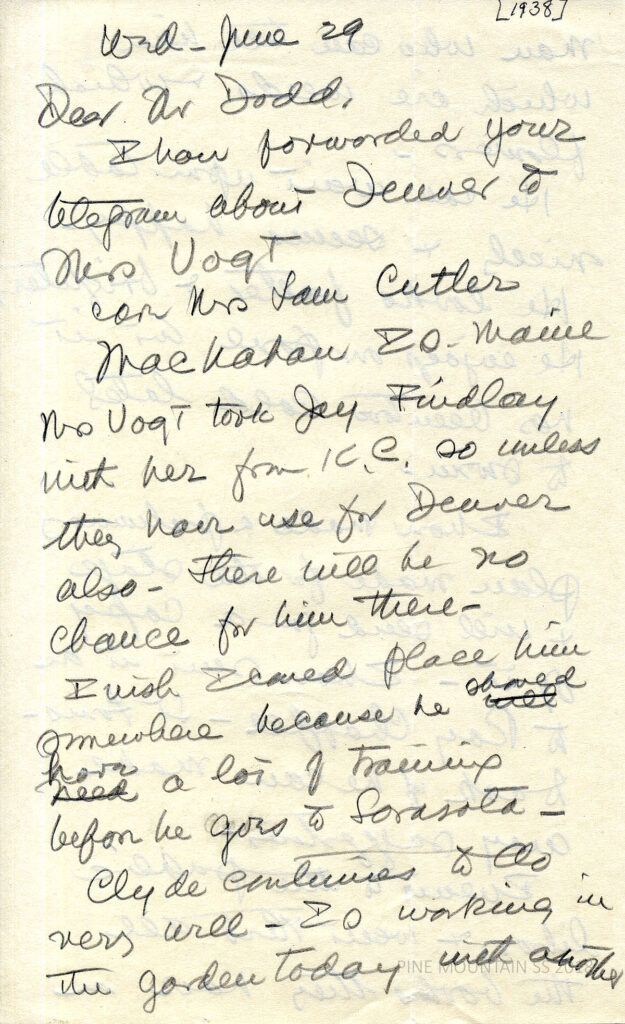 [1938]
Wed - June 29
Dear Mr Dodd,
I have forwarded your
telegram about Denver to
Mrs Vogt
care Mrs Sam Cutler
Mac Mahan IS - Maine
Mrs Vogt took Jay Findlay
with her from K.C. so unless
they have use for Denver
also - There will be no
chance for him there -
I wish I could place him
somewhere because he should
will
have
need a lot of training
before he goes to Sarasota -
Clyde continues to do
very well - Is working in
the garden today with another
PINE MOUNTAIN SS